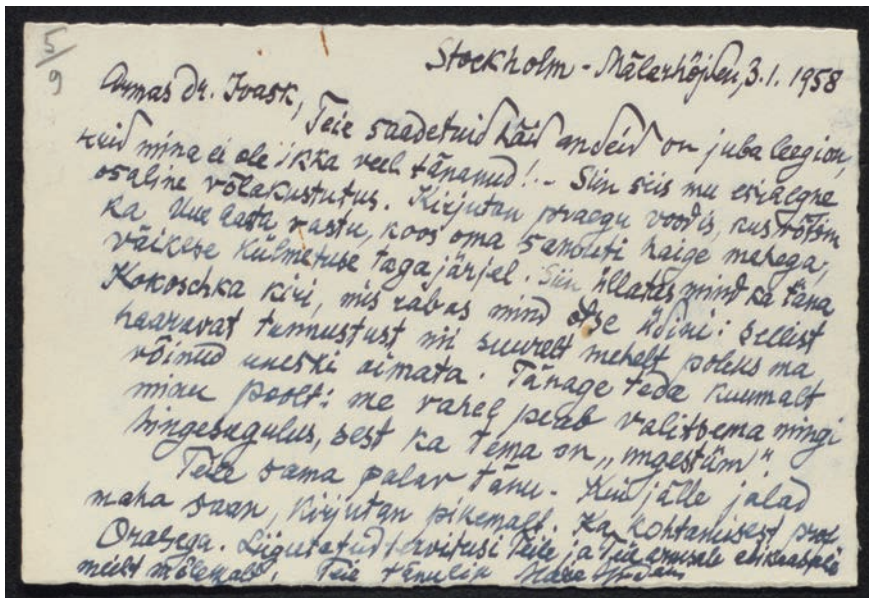 5/9
Stockholm - Mälarhöjden, 3.1. 1958
Armas Dr. Ivask,
Teie saadetuid häid andeid on juba leegion,
kuid mina ei ole ikka veel tänanud! - Siin siis mu esiaegne
osaline võlakustutus. Kirjutan praegu voodis, kus võtsin
ka Uue Aasta vastu, koos oma samuti haige mehega,
väikese külmetuse tagajärjel. Siin üllatas mind ka täna
Kokoschka kiri, mis rabas mind otse üdini: sellist
haaravat tunnustust nii suurelt mehelt poleks ma
võinud uneski aimata. Tänage teda kuumalt
minu poolt: me vahel peab valitsema mingi
hingesugulus, sest ka tema on „ungestüm".
Teile sama palav tänu. Kui jälle jalad
maha saan, kirjutan pikemalt. Ka kohtamisest prof.
Orasega. Liigutatud tervitusi Teile ja Teie armsale abikaasale
meilt mõlemalt. Teie tänulik